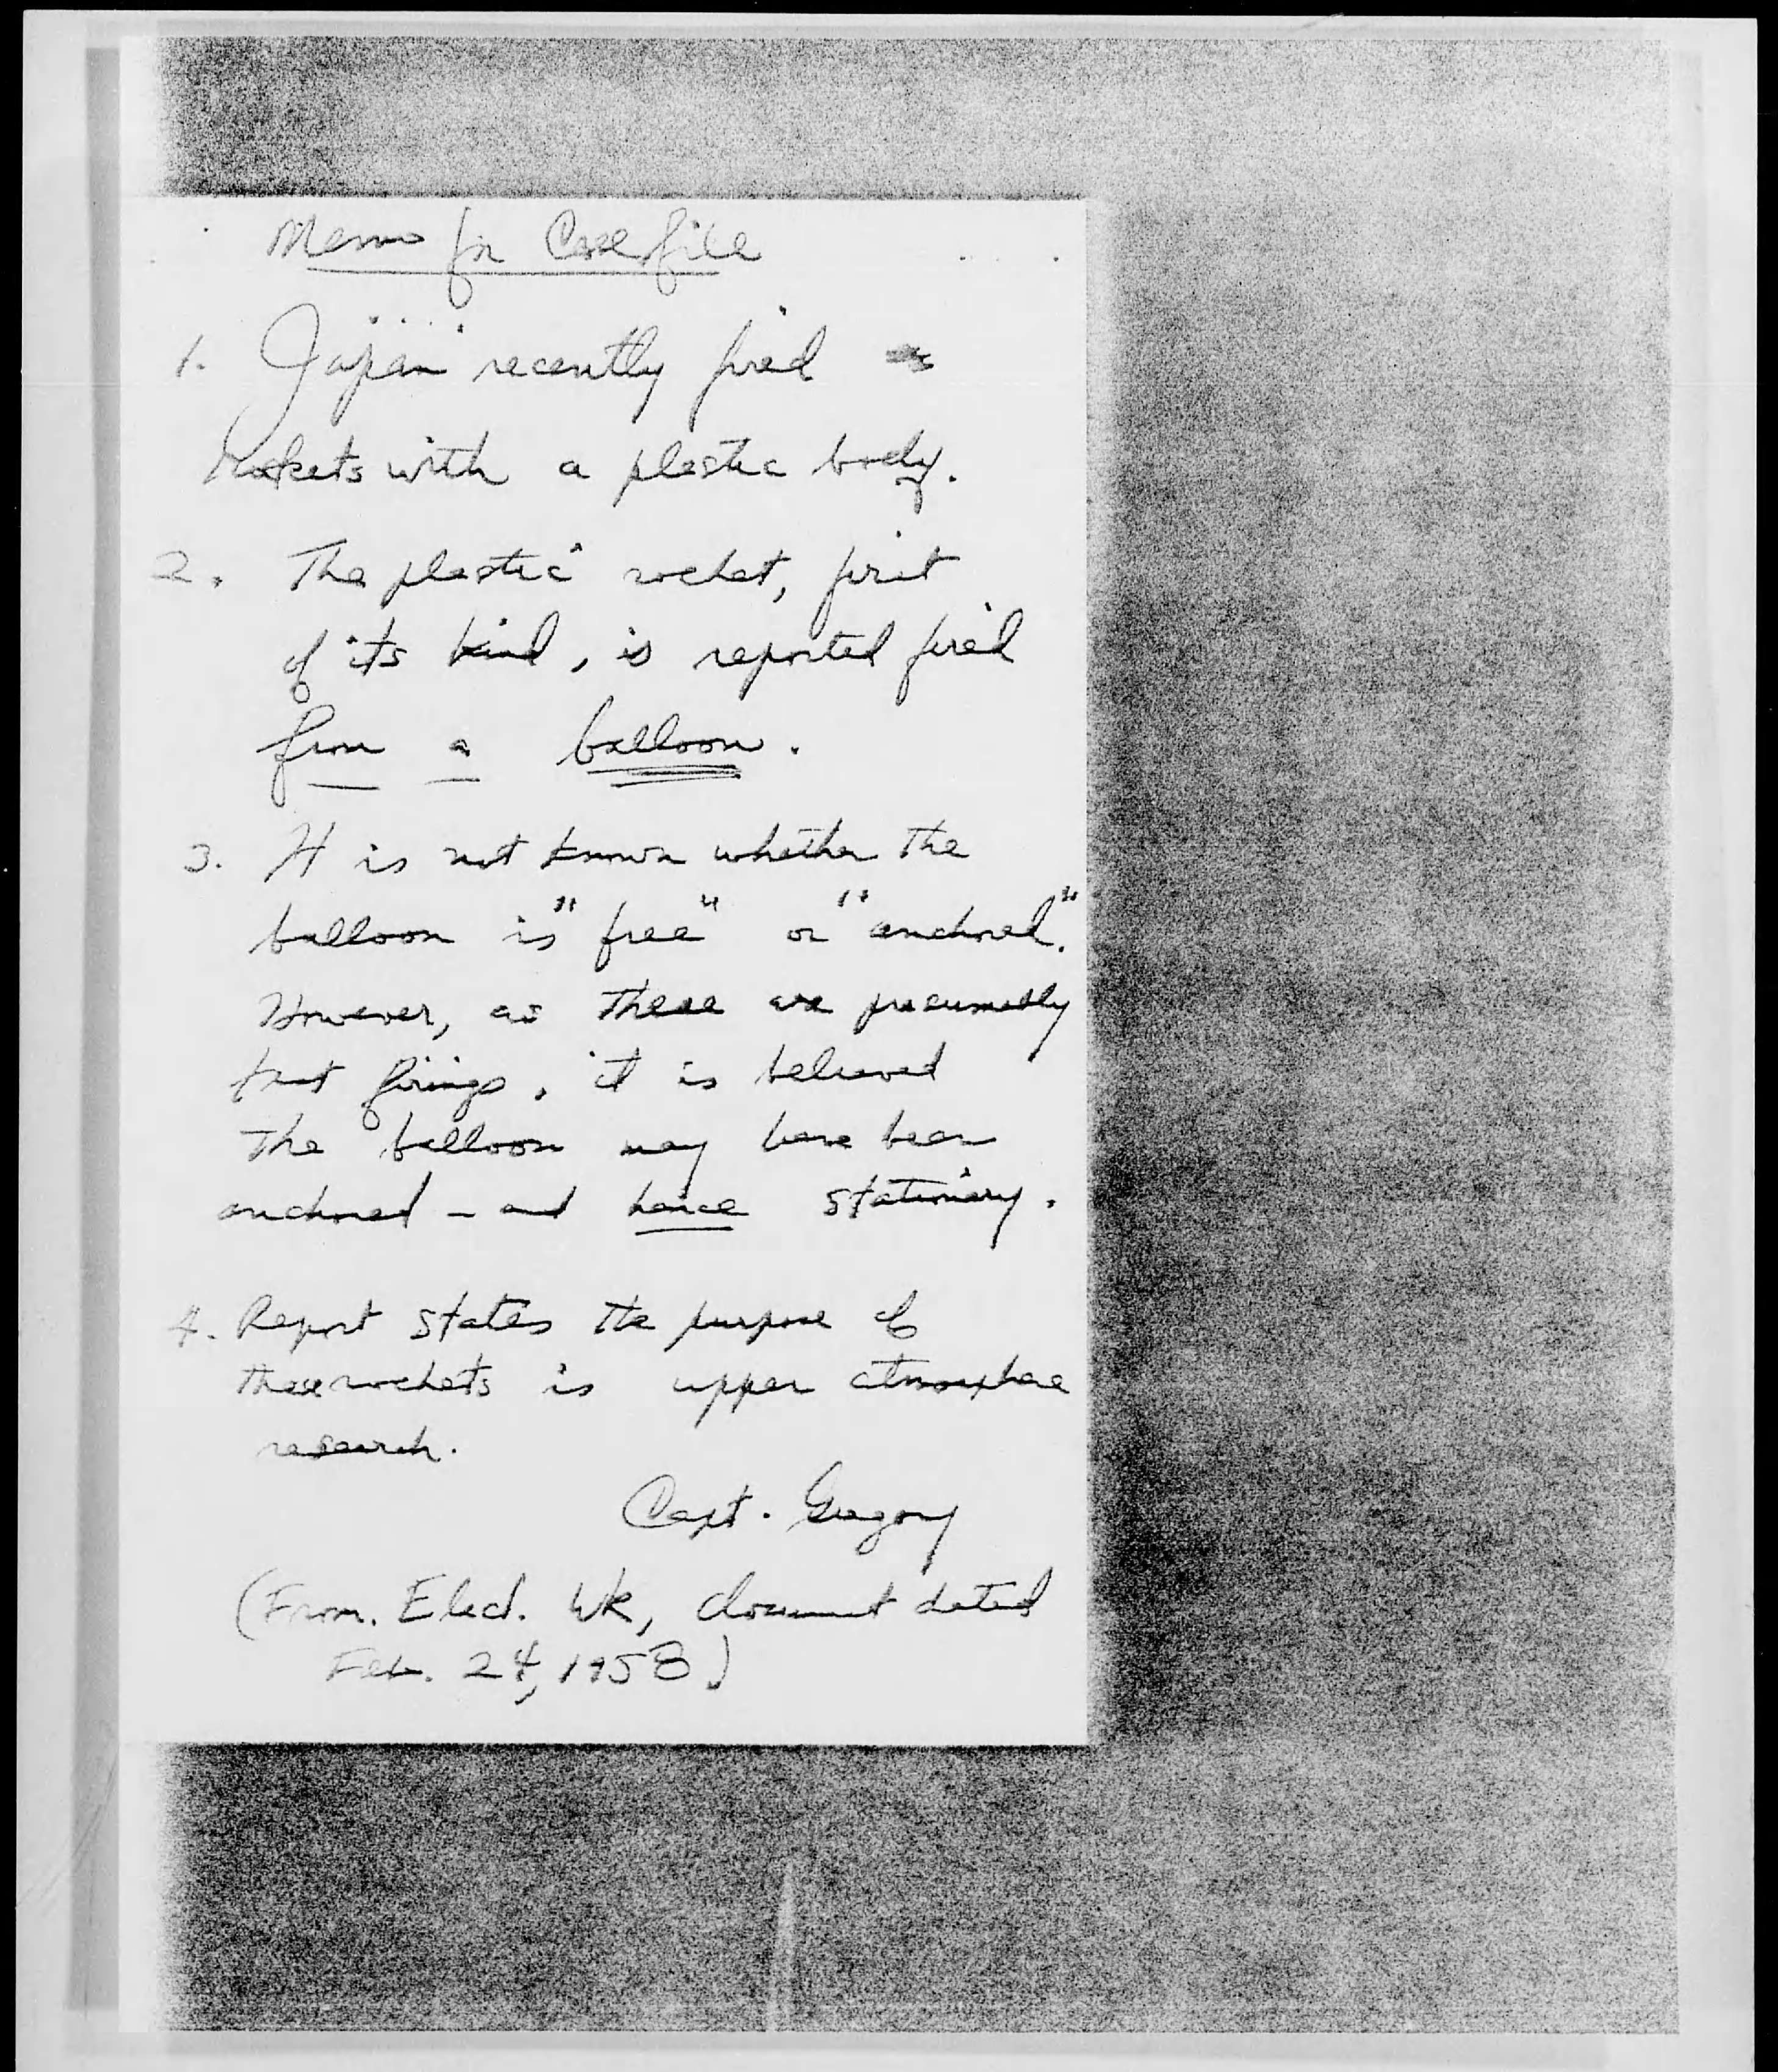 Memo for Case file
1. Japan recently fired
Rockets with a plastic body.
2. The plastic rocket, first
of its kind, is reported fired
from a balloon.
3. It is not known whether the
balloon is "free" or "anchored."
However, as these are presumably
test firings, it is believed
the balloon may have been
anchored - and hence stationary.
4. Report states the purpose of
these rockets is upper atmosphere
research.
Capt. Gregory
(From. Elect. Wk, document dated
Feb. 24, 1958)